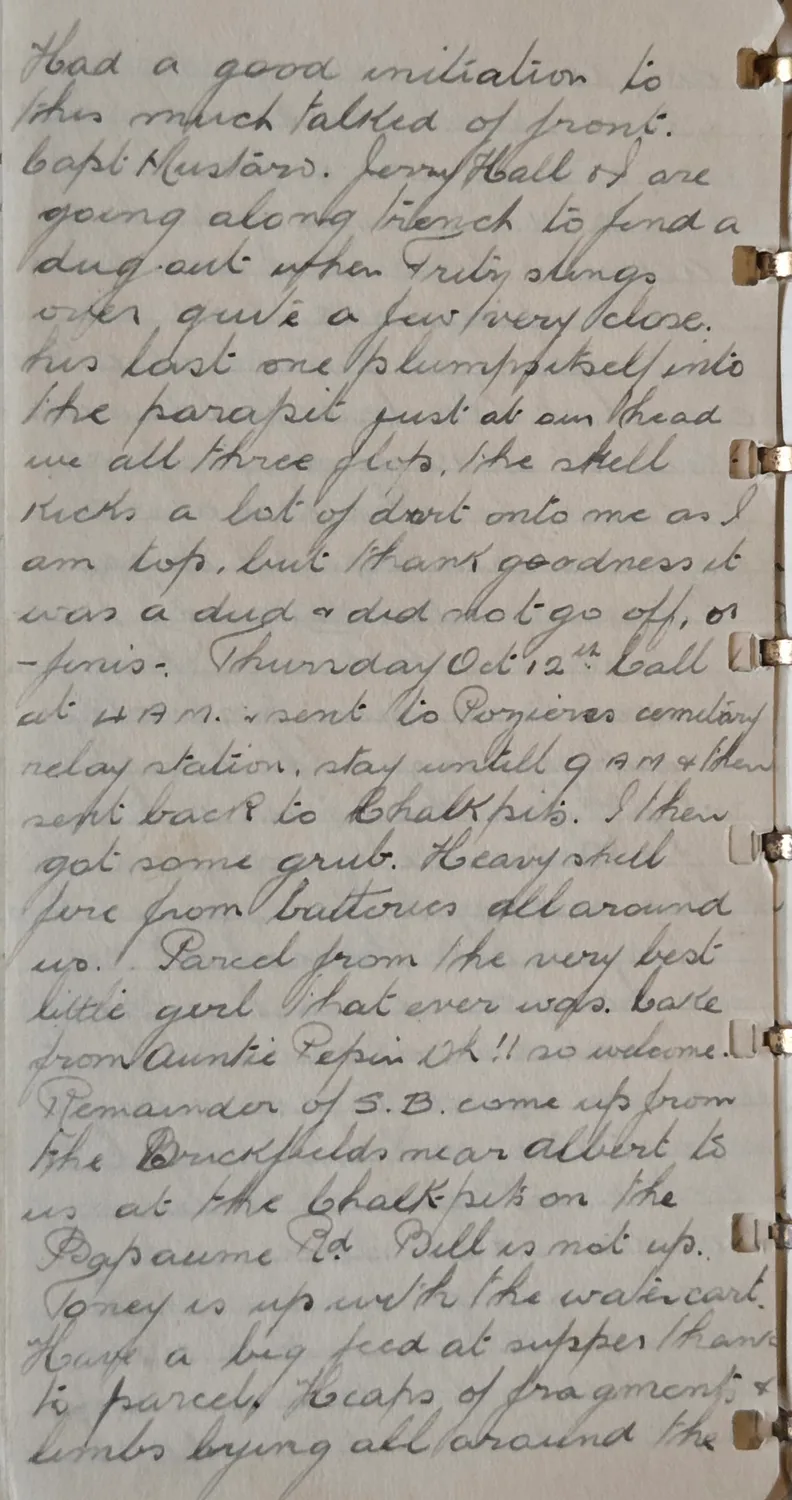 Had a good initiation to
this much talked of front.
Capt Mustard. Jerry Hall & I are
going along trench to find a
dug-out when Fritz slings
over quite a few very close.
his last one plumps itself into
the parapit just at our head
we all three flop, the shell
kicks a lot of dirt onto me as I
am top, but thank goodness it
was a dud & did not go off, or
-finis-. Thursday Oct 12th Call
at 4 AM. & sent to Pozieres cemitary
relay station. stay untill 9 AM & then
sent back to Chalkpits. I then
got some grub. Heavy shell
fire from batteries all around
us. Parcel from the very best
little girl that ever was. Cake
from Auntie Pepin Oh!! so welcome.
Remainder of S.B. come up from
the Brickfields near Albert to
us at the Chalk-pits on the
Bapaume Rd Bill is not up.
Toney is up with the watercart.
Have a big feed at supper thanks
to parcel. Heaps of fragments &
limbs lying all around the